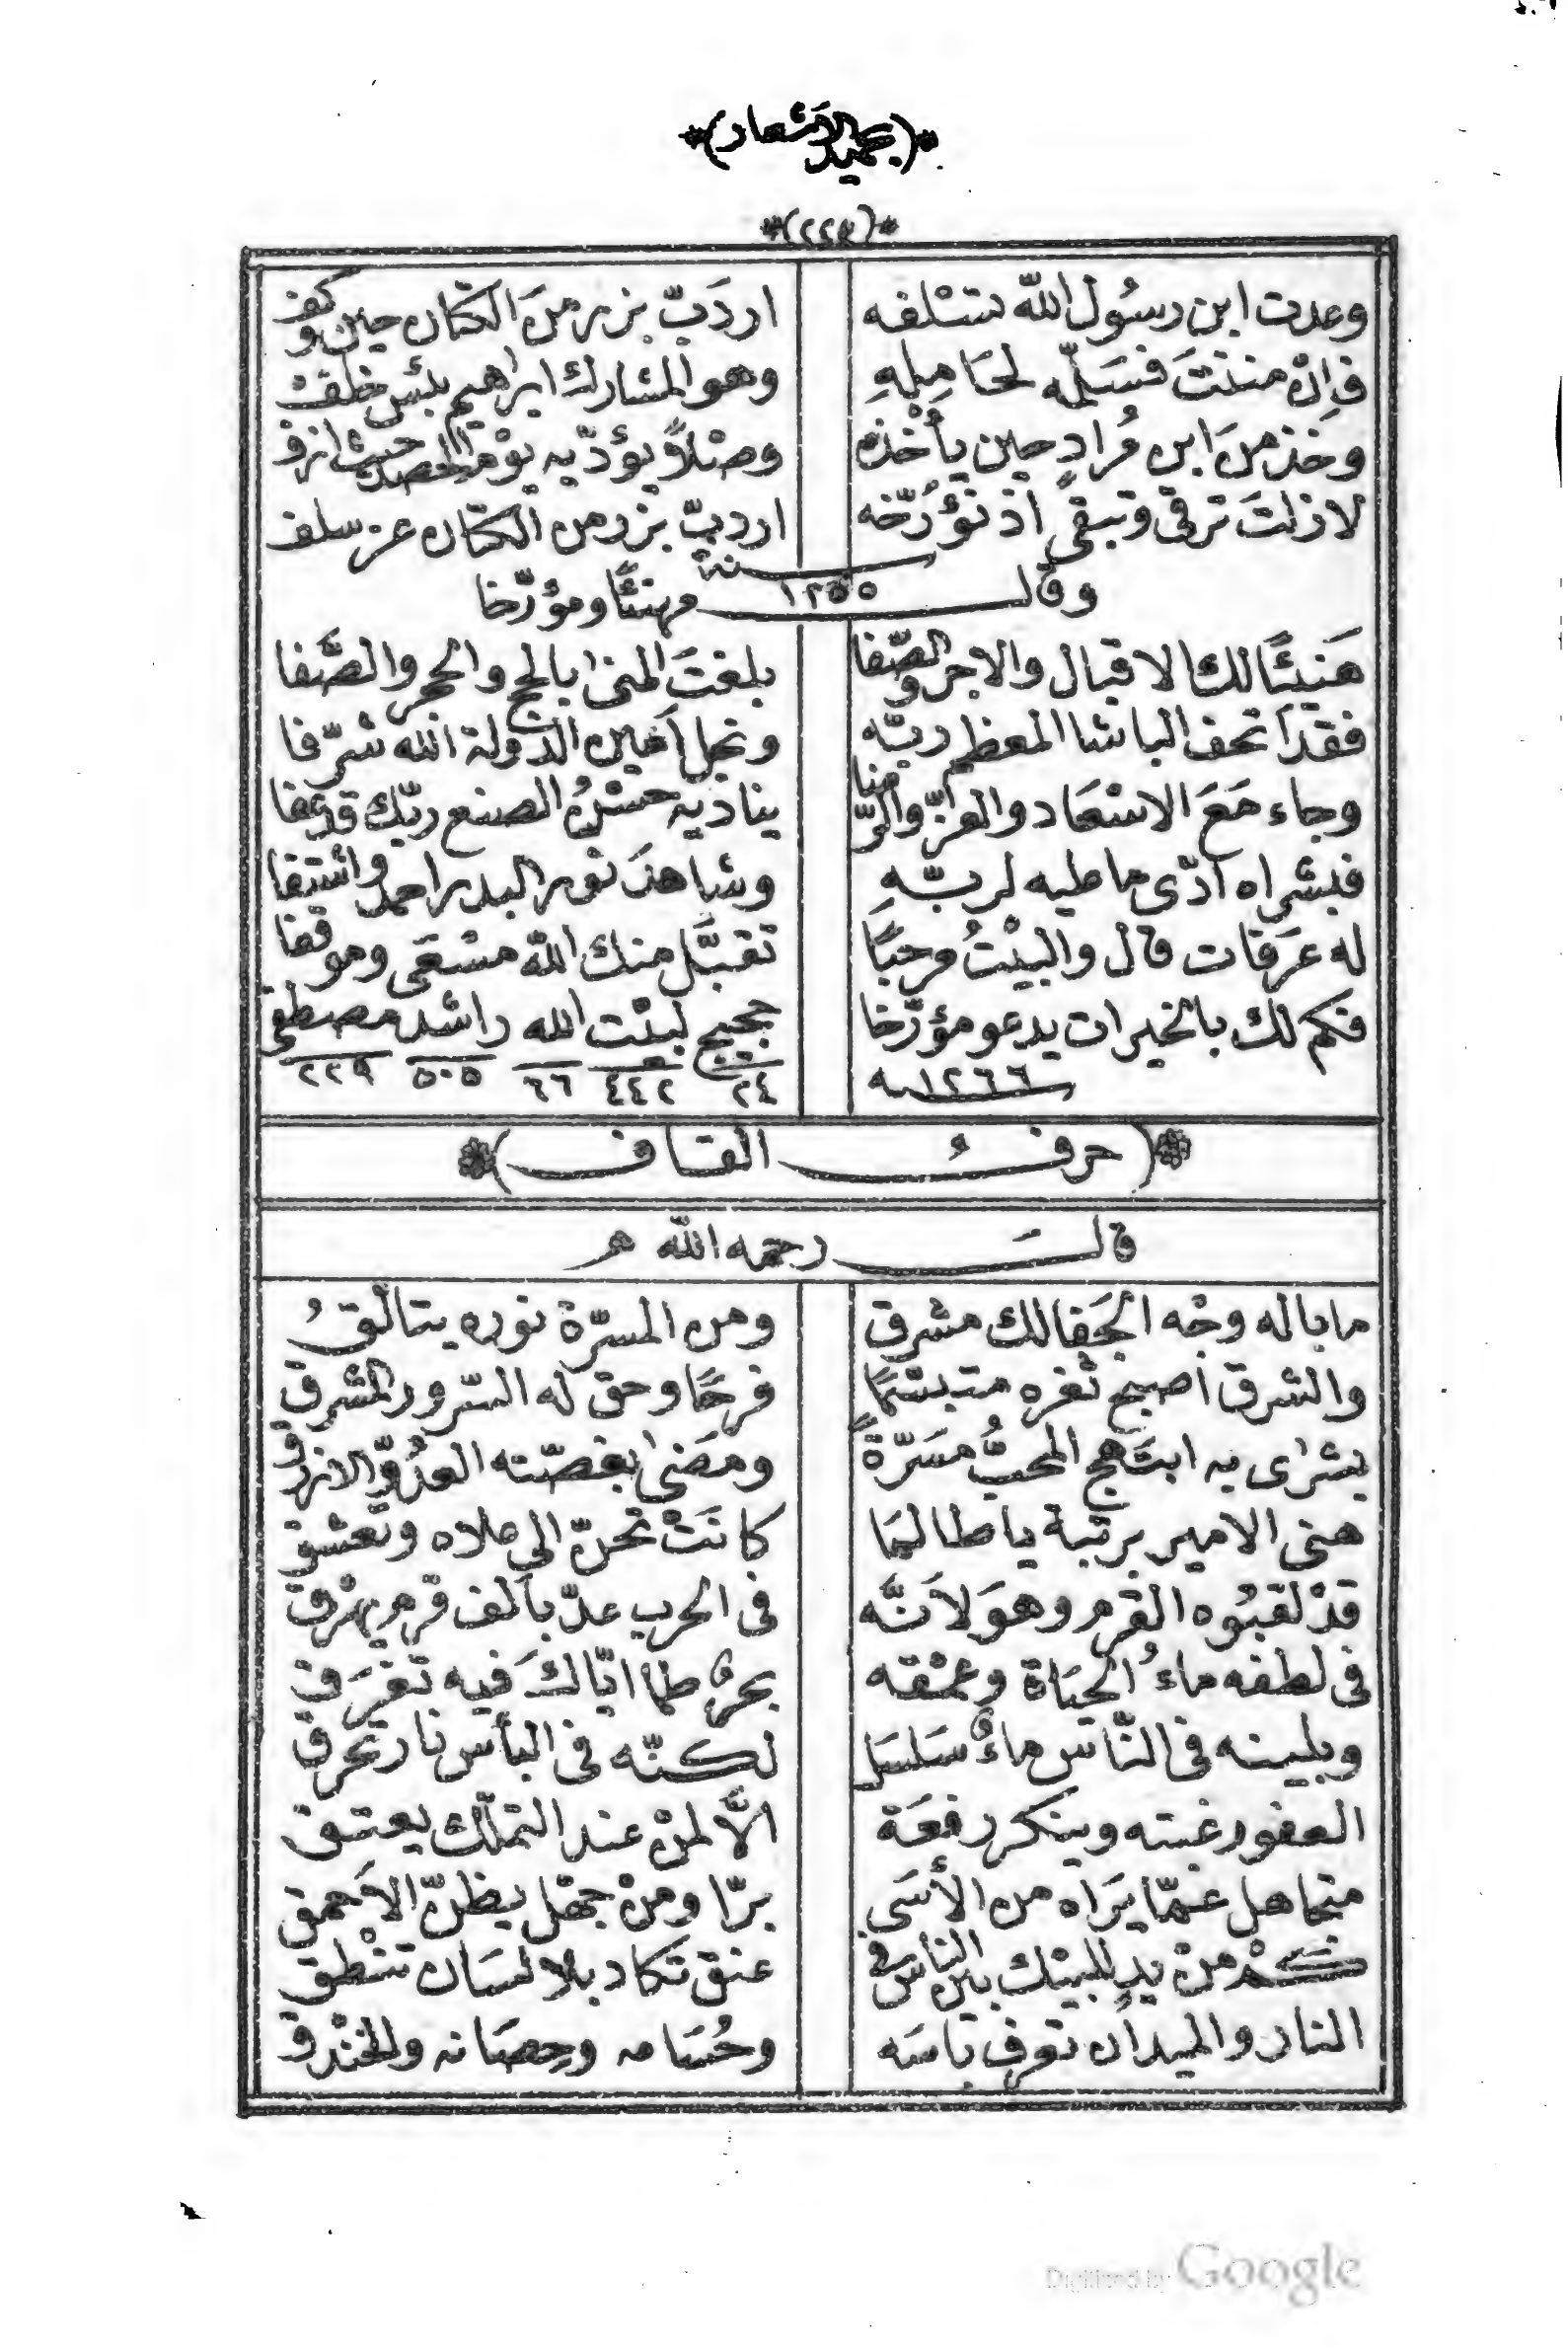 *(بحميد الاشعار)*
*(٢٢٩)*
وعدت ابن رسُول اللّه تسْلفه اردَبّ بزر منَ الكتان حين وكف
فاِنْ مننتَ فسَلّمه لحَامِلِهِ وهو المشارك ابراهيم بئس خلف
وخذ منَ ابن مُرادٍ حين يأْخذه وصْلاً يؤدّيه يوْم الحصد حيث ازف
لا زلتَ ترقى وتبقى اذ نؤرّخه اردبّ بزر من الكتان عز سلف
سنة ١٢٥٥
وقال مهنئًا ومؤرّخا
هَنيئًا لك الاقبال والاجر والصّفا بلغتَ المنى بالحج والحجر والصَّفا
فقد اتحف الباشا المعظم ربّه ونجل اَمين الدّولة اللّه شرّفا
وجاء مَعَ الاسْعَاد والعزّ والرّضا يناديه حسْنُ الصنع ربّك قد عفا
فبشراه ادّى ما عليه لربّهِ وشاهدَ نور البدر احمد واشتفا
له عرَفات قال والبيْتُ مرحبًا تقبَّل منك اللّه مسْعَى وموقفا
فكم لك بالخيرات يدعو مؤرّخا حجيج لبيْت الله راشد مصطفى
١٢٦٦ سنه ٢٤ ٤٤٢ ٦٦ ٥٠٥ ٢٢٩
*(حرفُ القاف)*
قالَ رحمه اللّه م
ما باله وجْه الجَفا لك مشرق ومن المسرّة نوره يتالّقُ
والشرق اصبح ثغره متبسّمًا فرحًا وحق له السّرور المشرق
بشراى به ابتَهج المحبُّ مسَرّةً ومضى بغصّته العدُوّ الازرق
هنى الامير برتبة يا طالمَا كانَتْ تحنّ الى علاه وتعشق
قدْ لقبُوه القرم وهوَ لاَنَّه فى الحرب عدّ بألف قرم يهْرق
فى لطفه ماءُ الحيَاة وعمْقه بحرٌ طما ايّاكَ فيه تغرَق
وبلينه فى النّاس ماءٌ سَلسَل لكنّه فى البأس نار تحرق
العفو رغبته وينكر رفعَة الاَّ لمنْ عند التملّك يعتق
متجاهل عمّا يَراه من الأسَى برّا ومنْ جهْل يظنّ الاحْمق
كمْ منْ يدٍ للبيْك بين الناس فى عنق تكاد بلا لسَان تنْطق
النار والميدان تعرف باسَه وحُسَامه وحِصَانه والخنْدق
Digitized by Google